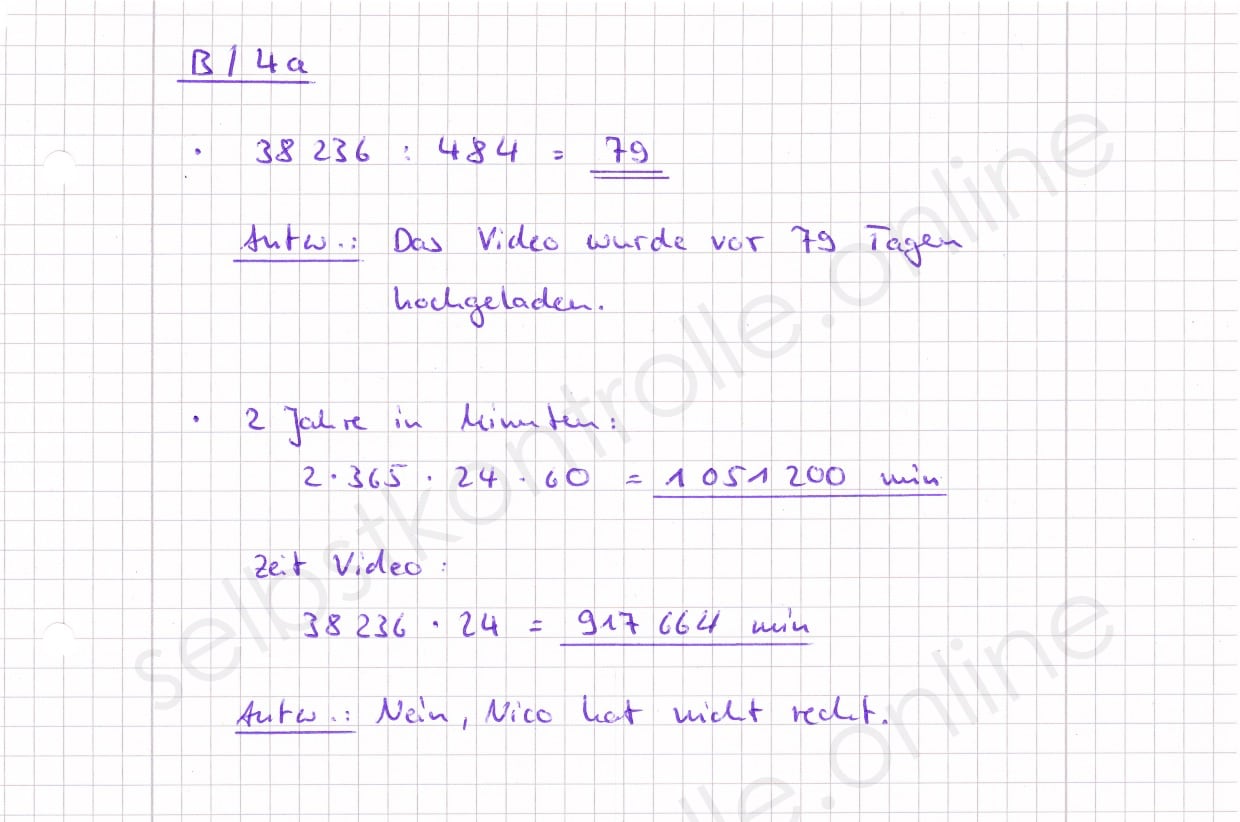 B / 4a
· 38 236 : 484 = 79
Antw.: Das Video wurde vor 79 Tagen
hochgeladen.
· 2 Jahre in Minuten:
2 · 365 · 24 · 60 = 1 051 200 min
Zeit Video:
38 236 · 24 = 917 664 min
Antw.: Nein, Nico hat nicht recht.
selbstkontrolle.online
lle.online